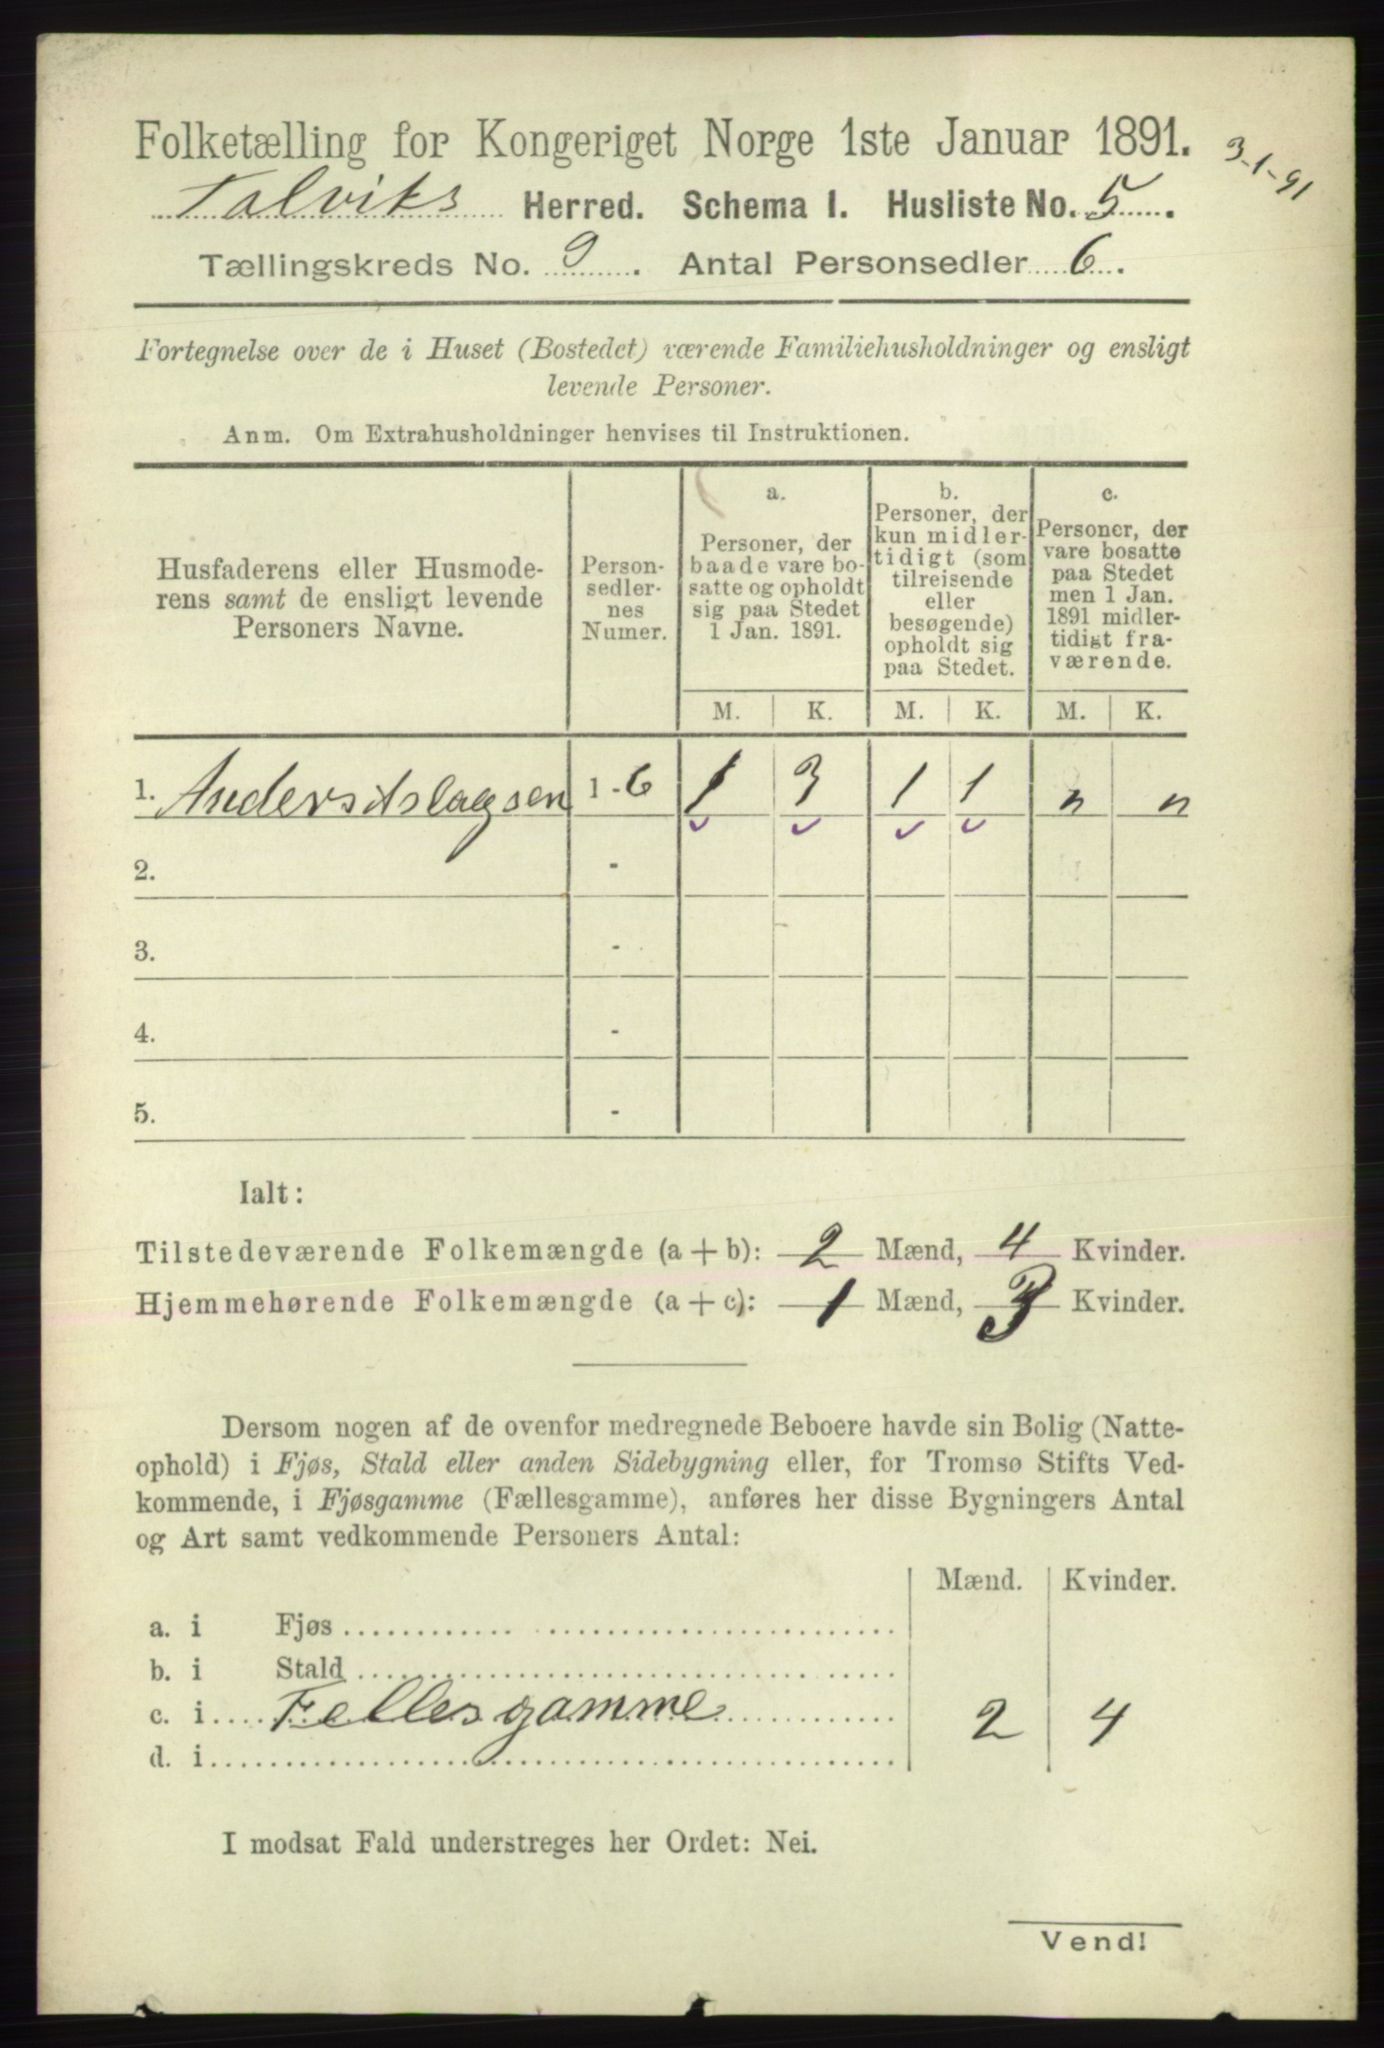 Folketælling for Kongeriget Norge 1ste Januar 1891.
3-1-91
Talviks Herred. Schema 1. Husliste No. 5.
Tællingskreds No. 9. Antal Personsedler 6.
Fortegnelse over de i Huset (Bostedet) værende Familiehusholdninger og ensligt
levende Personer.
Anm. Om Extrahusholdninger henvises til Instruktionen.
Husfaderens eller Husmode-
rens samt de ensligt levende
Personers Navne.
Person-
sedler-
nes
Numer.
a.
Personer, der
baade vare bo-
satte og opholdt
sig paa Stedet
1 Jan. 1891.
b.
Personer, der
kun midler-
tidigt (som
tilreisende
eller
besøgende)
opholdt sig
paa Stedet.
c.
Personer, der
vare bosatte
paa Stedet
men 1 Jan.
1891 midler-
tidigt fra-
værende.
M. K. M. K. M. K.
1. Anders Aslagsen 1-6 1 3 1 1 n n
2. -
3. -
4. -
5. -
Ialt:
Tilstedeværende Folkemængde (a+b): 2 Mænd, 4 Kvinder.
Hjemmehørende Folkemængde (a+c): 1 Mænd, 3 Kvinder.
Dersom nogen af de ovenfor medregnede Beboere havde sin Bolig (Natte-
ophold) i Fjøs, Stald eller anden Sidebygning eller, for Tromsø Stifts Ved-
kommende, i Fjøsgamme (Fællesgamme), anføres her disse Bygningers Antal
og Art samt vedkommende Personers Antal:
Mænd. Kvinder.
a. i Fjøs
b. i Stald
c. i Fellesgamme 2 4
d. i
I modsat Fald understreges her Ordet: Nei.
Vend!